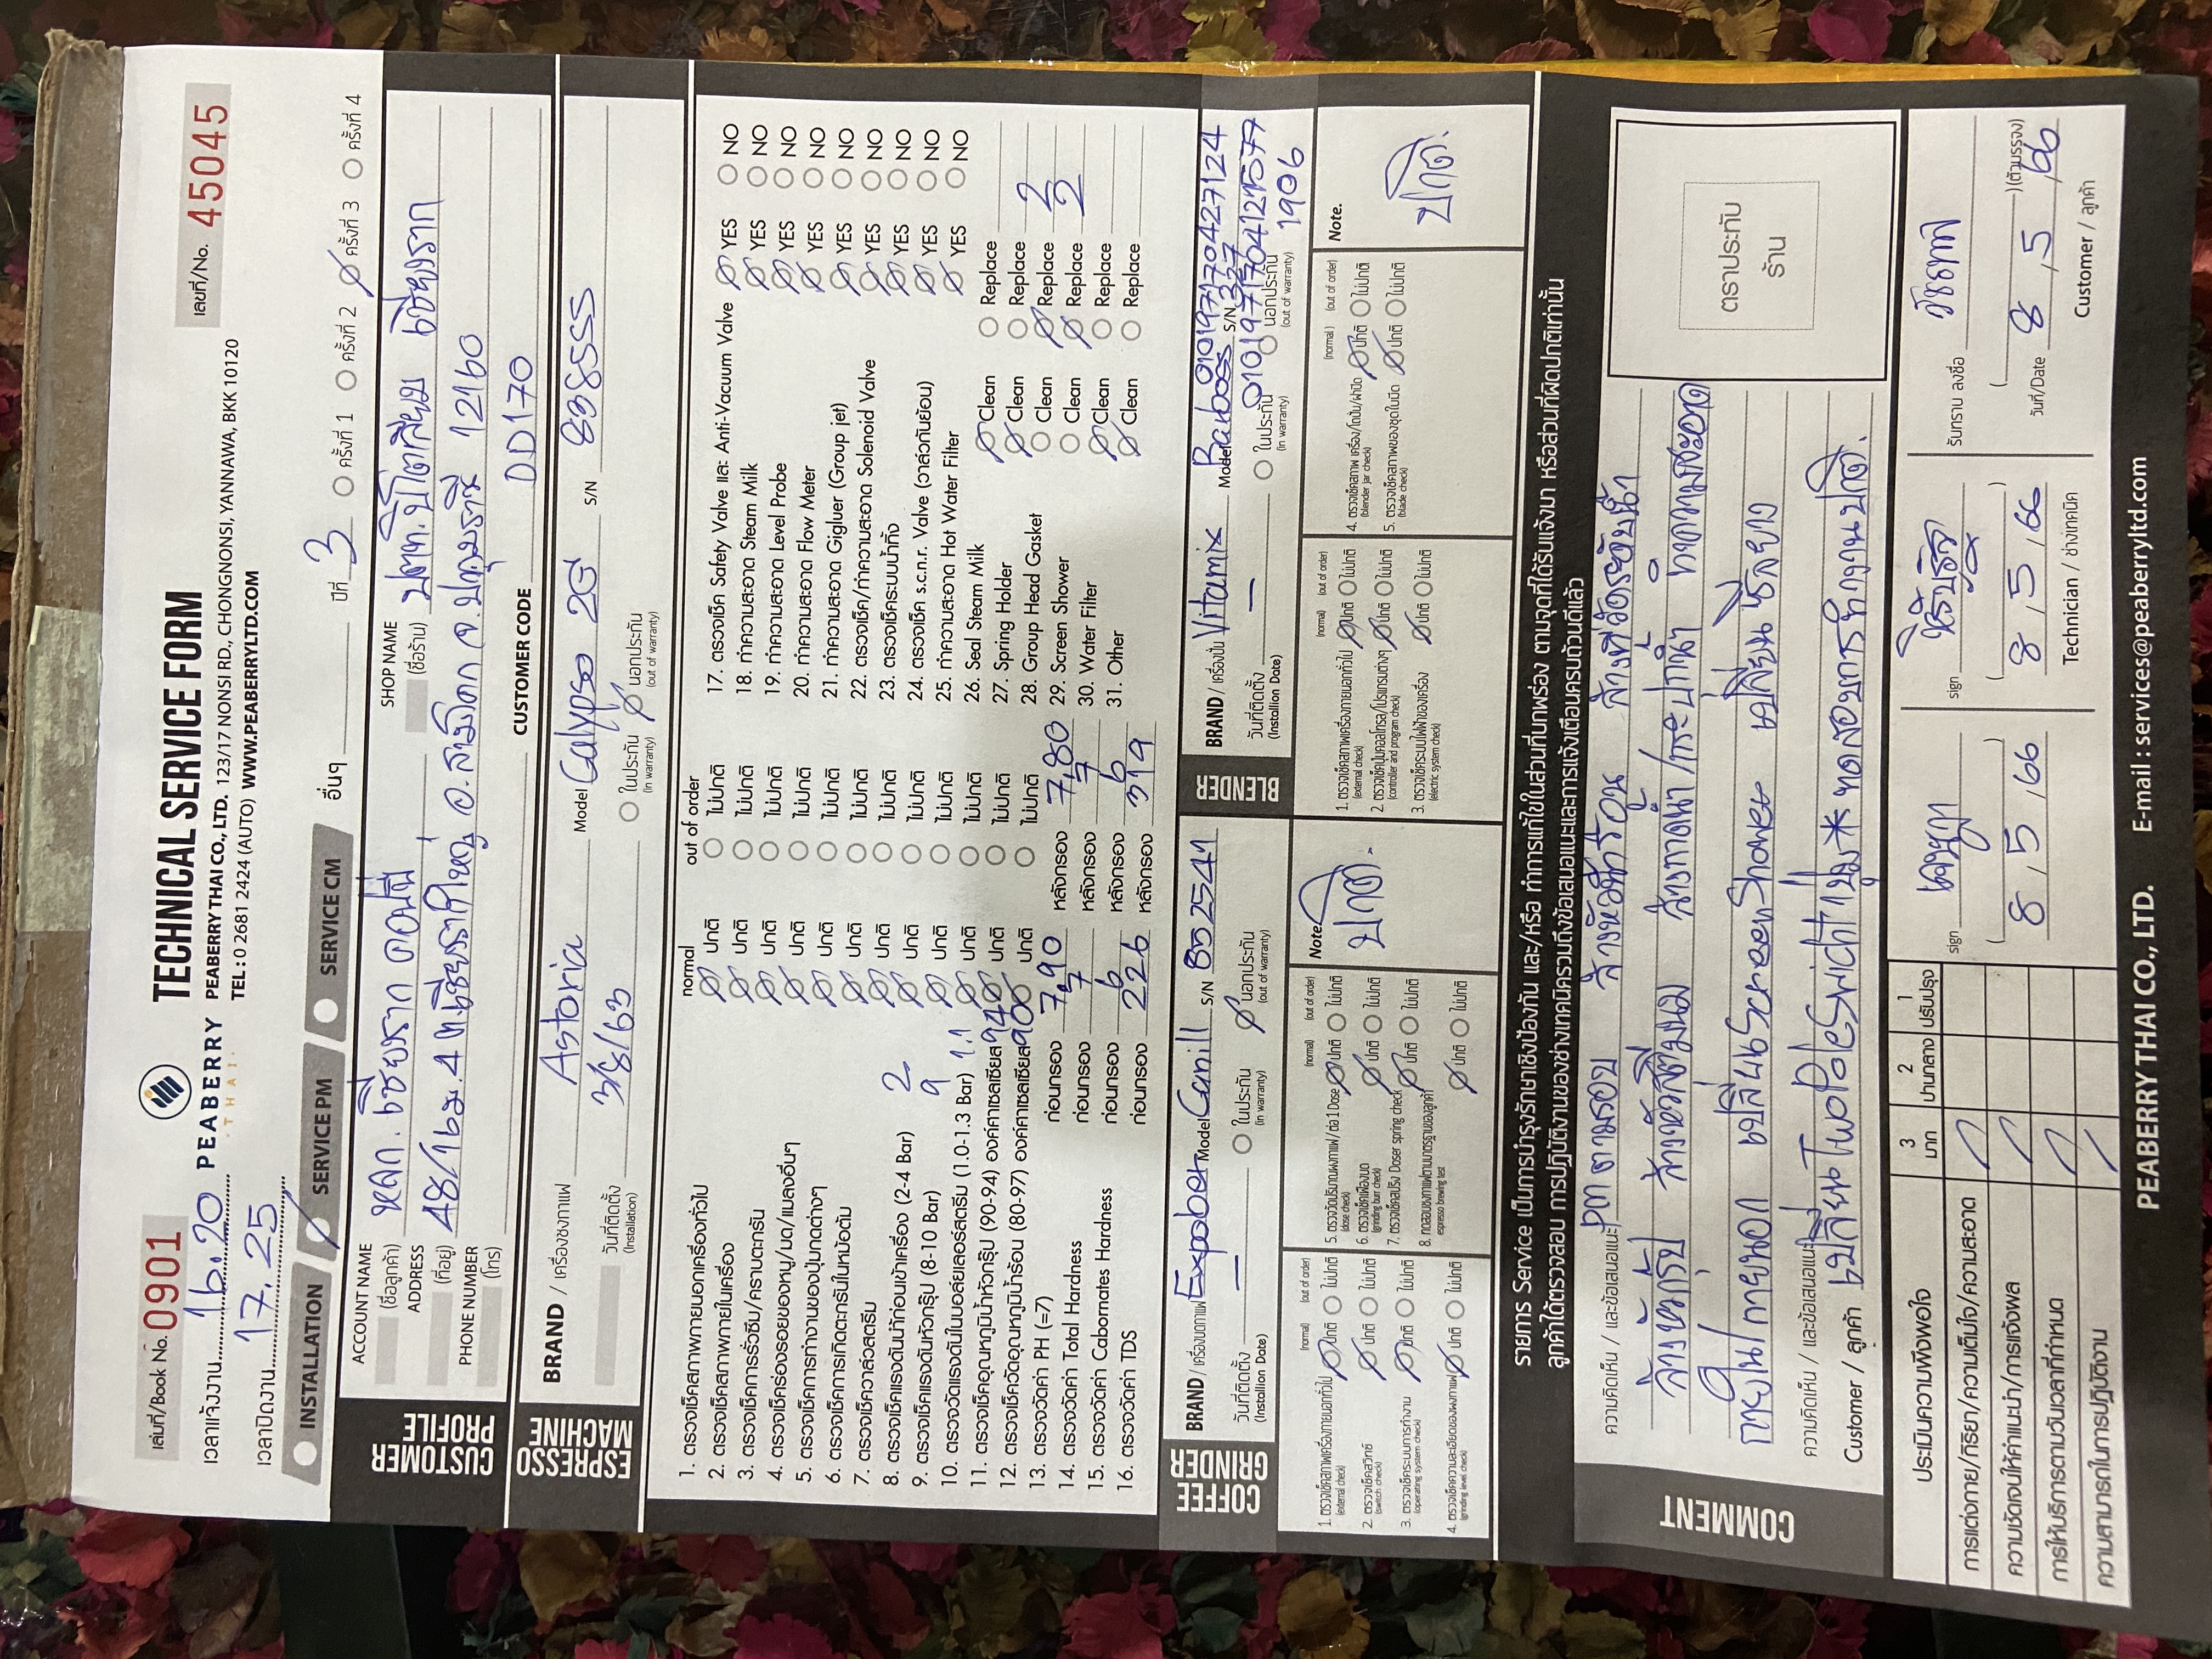 เล่มที่/Book No. 0901
เวลาแจ้งงาน 16.20
เวลาปิดงาน 17.25
PEABERRY
THAI
TECHNICAL SERVICE FORM
PEABERRY THAI CO., LTD. 123/17 NONSI RD., CHONGNONSI, YANNAWA, BKK 10120
TEL : 0 2681 2424 (AUTO) WWW.PEABERRYLTD.COM
เลขที่/No. 45045
INSTALLATION SERVICE PM SERVICE CM อื่นๆ ปีที่ 3 ครั้งที่ 1 ครั้งที่ 2 ครั้งที่ 3 ครั้งที่ 4
CUSTOMER PROFILE
ACCOUNT NAME (ชื่อลูกค้า) หจก. เชียงราก คอปปี้ SHOP NAME (ชื่อร้าน) ปตท.ปิโตเลียม เชียงราก
ADDRESS (ที่อยู่) 48/16 ม.4 ต.เชียงรากใหญ่ อ.สามโคก จ.ปทุมธานี 12160
PHONE NUMBER (โทร)
CUSTOMER CODE DD170
ESPRESSO MACHINE
BRAND / เครื่องชงกาแฟ Astoria Model Calypso 2G S/N 838555
วันที่ติดตั้ง (Installation) 3/8/63 ในประกัน (in warranty) นอกประกัน (out of warranty)
normal out of order
1. ตรวจเช็คสภาพภายนอกเครื่องทั่วไป ปกติ ไม่ปกติ
2. ตรวจเช็คสภาพภายในเครื่อง ปกติ ไม่ปกติ
3. ตรวจเช็คการรั่วซึม/คราบตะกรัน ปกติ ไม่ปกติ
4. ตรวจเช็คร่องรอยของหนู/มด/แมลงอื่นๆ ปกติ ไม่ปกติ
5. ตรวจเช็คการทำงานของปุ่มกดต่างๆ ปกติ ไม่ปกติ
6. ตรวจเช็คการเกิดตะกรันในหม้อต้ม ปกติ ไม่ปกติ
7. ตรวจเช็ควาล์วสตรีม ปกติ ไม่ปกติ
8. ตรวจเช็คแรงดันน้ำก่อนเข้าเครื่อง (2-4 Bar) 2 ปกติ ไม่ปกติ
9. ตรวจเช็คแรงดันหัวกรุ๊ป (8-10 Bar) 9 ปกติ ไม่ปกติ
10. ตรวจวัดแรงดันในบอล์ยเลอร์สตรีม (1.0-1.3 Bar) 1.1 ปกติ ไม่ปกติ
11. ตรวจเช็คอุณหภูมิน้ำหัวกรุ๊ป (90-94) องค์ศาเซลเซียส 94 ปกติ ไม่ปกติ
12. ตรวจเช็ควัดอุณหภูมิน้ำร้อน (80-97) องค์ศาเซลเซียส 90 ปกติ ไม่ปกติ
13. ตรวจวัดค่า PH (=7) ก่อนกรอง 7.90 หลังกรอง 7.80
14. ตรวจวัดค่า Total Hardness ก่อนกรอง 7 หลังกรอง 7
15. ตรวจวัดค่า Cabornates Hardness ก่อนกรอง 6 หลังกรอง 6
16. ตรวจวัดค่า TDS ก่อนกรอง 226 หลังกรอง 319
17. ตรวจเช็ค Safety Valve และ Anti-Vacuum Valve YES NO
18. ทำความสะอาด Steam Milk YES NO
19. ทำความสะอาด Level Probe YES NO
20. ทำความสะอาด Flow Meter YES NO
21. ทำความสะอาด Gigluer (Group jet) YES NO
22. ตรวจเช็ค/ทำความสะอาด Solenoid Valve YES NO
23. ตรวจเช็คระบบน้ำทิ้ง YES NO
24. ตรวจเช็ค s.c.n.r. Valve (วาล์วกันย้อน) YES NO
25. ทำความสะอาด Hot Water Filter YES NO
26. Seal Steam Milk Clean Replace
27. Spring Holder Clean Replace
28. Group Head Gasket Clean Replace 2
29. Screen Shower Clean Replace 2
30. Water Filter Clean Replace
31. Other Clean Replace
COFFEE GRINDER
BRAND / เครื่องบดกาแฟ Expober Model Canill S/N 852541
วันที่ติดตั้ง (Installion Date) – ในประกัน (in warranty) นอกประกัน (out of warranty)
BLENDER
BRAND / เครื่องปั่น Vitamix Model Barboss S/N 010197170427124
327
วันที่ติดตั้ง (Installion Date) – ในประกัน (in warranty) นอกประกัน (out of warranty)
0101971704121577
1906
(normal) (out of order)
1. ตรวจเช็คสภาพเครื่องภายนอกทั่วไป (external check) ปกติ ไม่ปกติ
2. ตรวจเช็คสวิทช์ (switch check) ปกติ ไม่ปกติ
3. ตรวจเช็คระบบการทำงาน (operating system check) ปกติ ไม่ปกติ
4. ตรวจเช็คความละเอียดของผงกาแฟ (grinding level check) ปกติ ไม่ปกติ
(normal) (out of order)
5. ตรวจวัดปริมาณผงกาแฟ/ต่อ 1 Dose (dose check) ปกติ ไม่ปกติ
6. ตรวจเช็คเฟืองบด (grinding burr check) ปกติ ไม่ปกติ
7. ตรวจเช็คสปริง Doser spring check ปกติ ไม่ปกติ
8. ทดสอบชงกาแฟตามมาตรฐานของลูกค้า espresso brewing test ปกติ ไม่ปกติ
Note.
ปกติ.
(normal) (out of order)
1. ตรวจเช็คสภาพเครื่องภายนอกทั่วไป (external check) ปกติ ไม่ปกติ
2. ตรวจเช็คปุ่มคอลโทรล/โปรแกรมต่างๆ (controller and program check) ปกติ ไม่ปกติ
3. ตรวจเช็คระบบไฟฟ้าของเครื่อง (electric system check) ปกติ ไม่ปกติ
(normal ) (out of order)
4. ตรวจเช็คสภาพ เครื่อง/โถปั่น/ฝาปิด (blender jar check) ปกติ ไม่ปกติ
5. ตรวจเช็คสภาพของชุดใบมีด (blade check) ปกติ ไม่ปกติ
Note.
ปกติ.
รายการ Service เป็นการบำรุงรักษาเชิงป้องกัน และ/หรือ ทำการแก้ไขในส่วนที่บกพร่อง ตามจุดที่ได้รับแจ้งมา หรือส่วนที่ผิดปกติเท่านั้น
ลูกค้าได้ตรวจสอบ การปฏิบัติงานของช่างเทคนิครวมถึงข้อเสนอแนะและการแจ้งเตือนครบถ้วนดีแล้ว
COMMENT
ความคิดเห็น / และข้อเสนอแนะ PM ตามรอบ ล้างหัวน้ำร้อน ล้างที่วัดระดับน้ำ
ล้างหัวกรุ๊ป ล้างหัวสตีมนม ล้างถาดน้ำ/กระปุกน้ำ ทำความสะอาด
ภายใน/ภายนอก เปลี่ยน Screen Shower เปลี่ยน ซีลยาง
ความคิดเห็น / และข้อเสนอแนะ
Customer / ลูกค้า เปลี่ยน Two Pole Swicht 1 ปุ่ม * ทดสอบการทำงานปกติ.
ตราประทับ
ร้าน
ประเมินความพึงพอใจ 3 มาก 2 ปานกลาง 1 ปรับปรุง
การแต่งกาย/กิริยา/ความเต็มใจ/ความสะอาด
ความชัดเจนให้คำแนะนำ/การแจ้งผล
การให้บริการตามวันเวลาที่กำหนด
ความสามารถในการปฏิบัติงาน
sign
8 , 5 , 66
sign
8 , 5 , 66
Technician / ช่างเทคนิค
รับทราบ ลงชื่อ
(ตัวบรรจง)
วันที่/Date 8 , 5 , 66
Customer / ลูกค้า
PEABERRY THAI CO., LTD. E-mail : services@peaberryltd.com